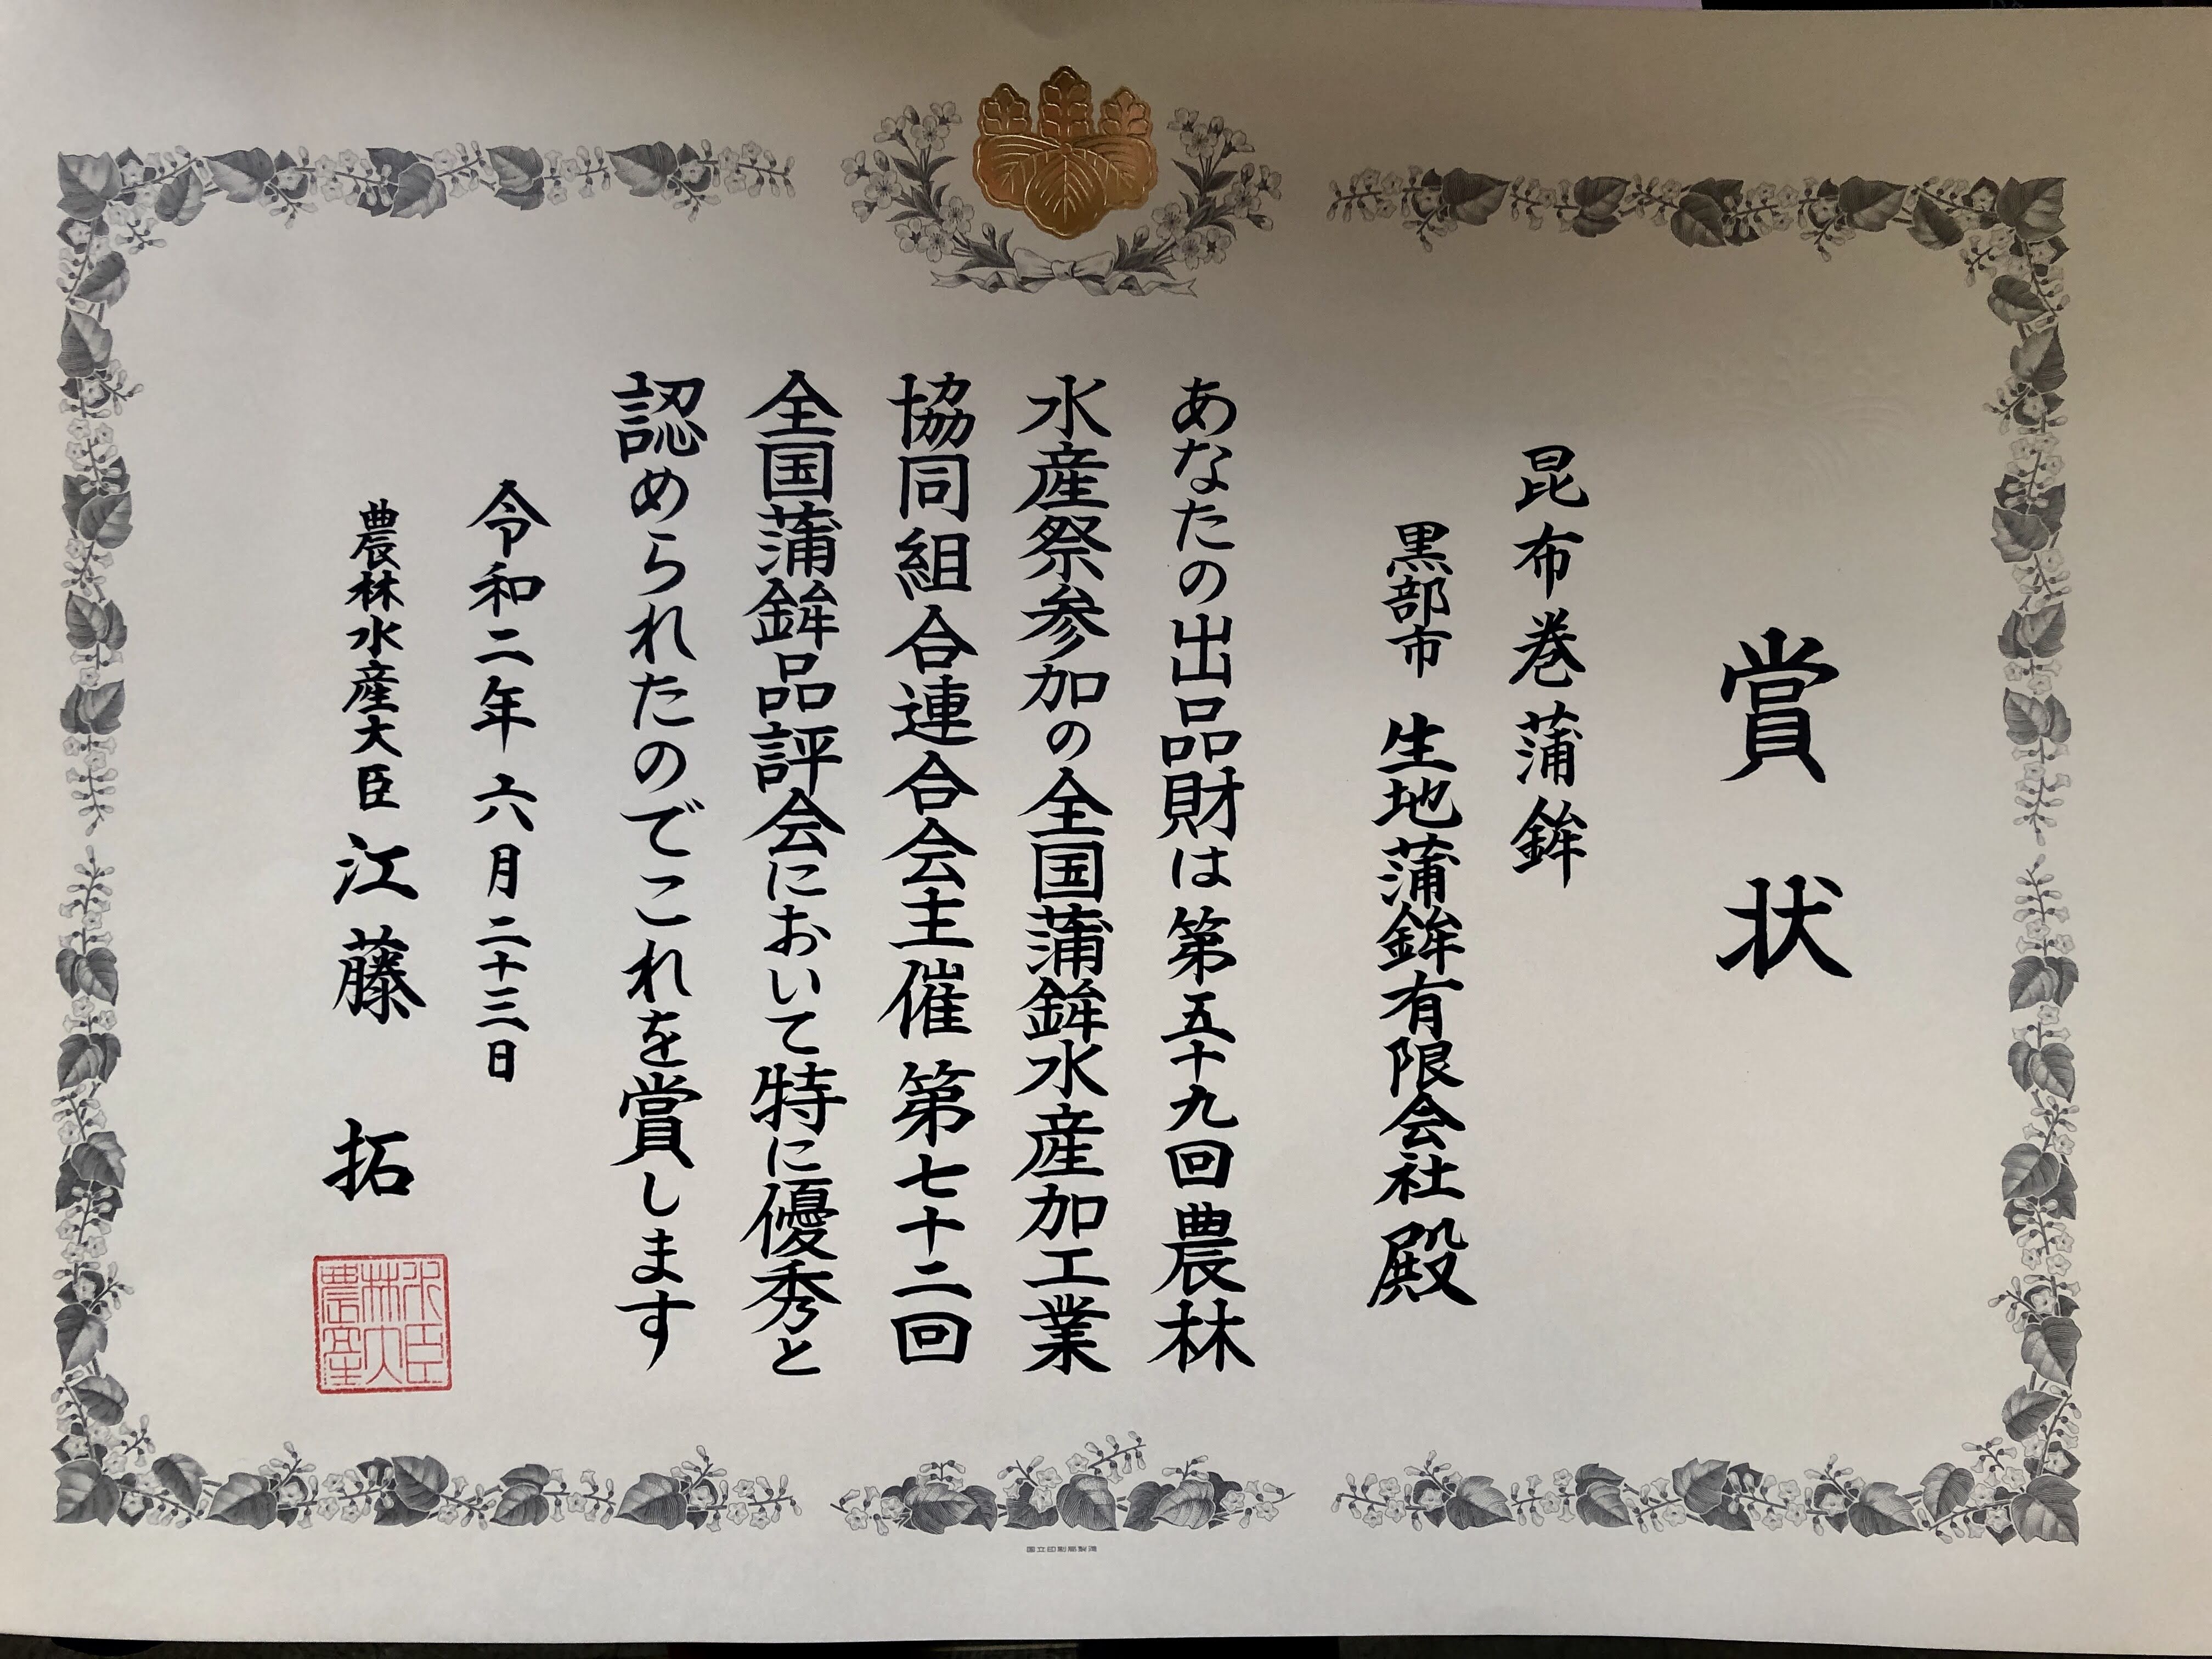 賞状
昆布巻蒲鉾
黒部市 生地蒲鉾有限会社 殿
あなたの出品財は第五十九回農林
水産祭参加の全国蒲鉾水産加工業
協同組合連合会主催 第七十二回
全国蒲鉾品評会において特に優秀と
認められたのでこれを賞します
令和二年 六月二十三日
農林水産大臣 江藤 拓
農林水産大臣
国立印刷局製造